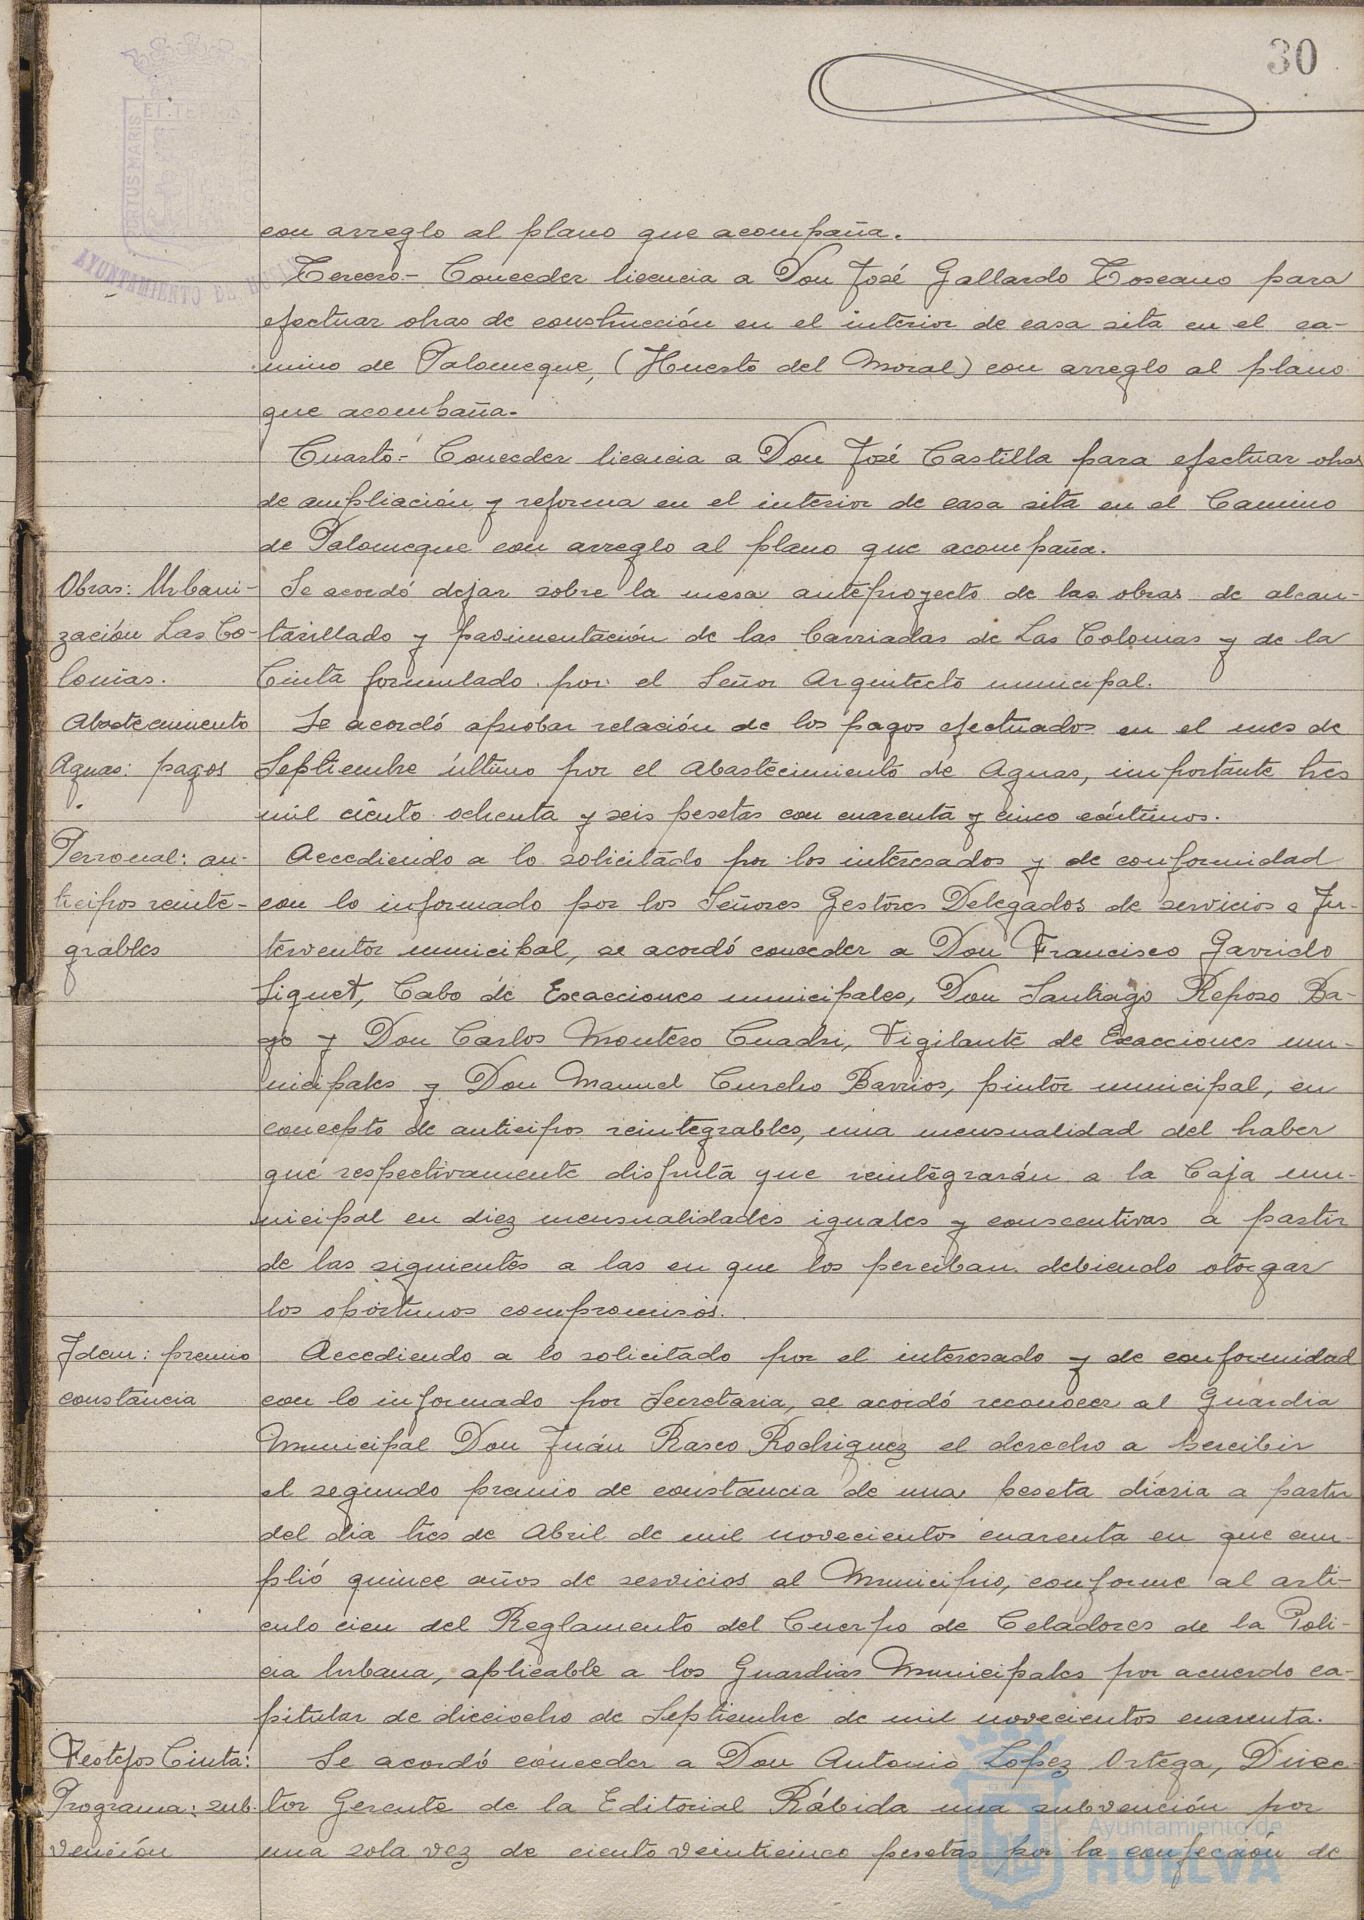 30
PORTUS MARIS
ET TERRÆ
AYUNTAMIENTO DE HUELVA
con arreglo al plano que acompaña.
Tercero- Conceder licencia a Don José Gallardo Toscano para
efectuar obras de construcción en el interior de casa sita en el ca-
mino de Palomeque, (Huerto del Moral) con arreglo al plano
que acompaña.
Cuarto- Conceder licencia a Don José Castilla para efectuar obras
de ampliación y reforma en el interior de casa sita en el Camino
de Palomeque con arreglo al plano que acompaña.
Obras: Urbani-
zación Las Co-
lonias.
Se acordó dejar sobre la mesa anteproyecto de las obras de alcan-
tarillado y pavimentación de las barriadas de Las Colonias y de la
Cinta formulado por el Señor Arquitecto municipal.
Abastecimiento
Aguas: pagos
Se acordó aprobar relación de los pagos efectuados en el mes de
Septiembre último por el Abastecimiento de Aguas, importante tres
mil ciento ochenta y seis pesetas con cuarenta y cinco céntimos.
Personal: an-
ticipos reinte-
grables
Accediendo a lo solicitado por los interesados y de conformidad
con lo informado por los Señores Gestores Delegados de servicios e In-
terventor municipal, se acordó conceder a Don Francisco Garrido
Siguet, Cabo de Exacciones municipales, Don Santiago Reposo Ba-
go y Don Carlos Montero Cuadri, Vigilante de Exacciones mu-
nicipales y Don Manuel Curcho Barrios, pintor municipal, en
concepto de anticipos reintegrables, una mensualidad del haber
que respectivamente disfruta que reintegrarán a la Caja mu-
nicipal en diez mensualidades iguales y consecutivas a partir
de las siguientes a las en que los perciban debiendo otorgar
los oportunos compromisos.
Idem: premio
constancia
Accediendo a lo solicitado por el interesado y de conformidad
con lo informado por Secretaria, se acordó reconocer al Guardia
Municipal Don Juán Rasco Rodriguez el derecho a percibir
el segundo premio de constancia de una peseta diaria a partir
del dia tres de Abril de mil novecientos cuarenta en que cum-
plió quince años de servicios al Municipio, conforme al arti-
culo cien del Reglamento del Cuerpo de Celadores de la Poli-
cia Urbana, aplicable a los Guardias Municipales por acuerdo ca-
pitular de dieciocho de Septiembre de mil novecientos cuarenta.
Festejos Cinta:
Programa: sub-
vención
Se acordó conceder a Don Antonio López Ortega, Direc-
tor Gerente de la Editorial Rábida una subvención por
una sola vez de ciento veinticinco pesetas por la confección de
Ayuntamiento de
HUELVA